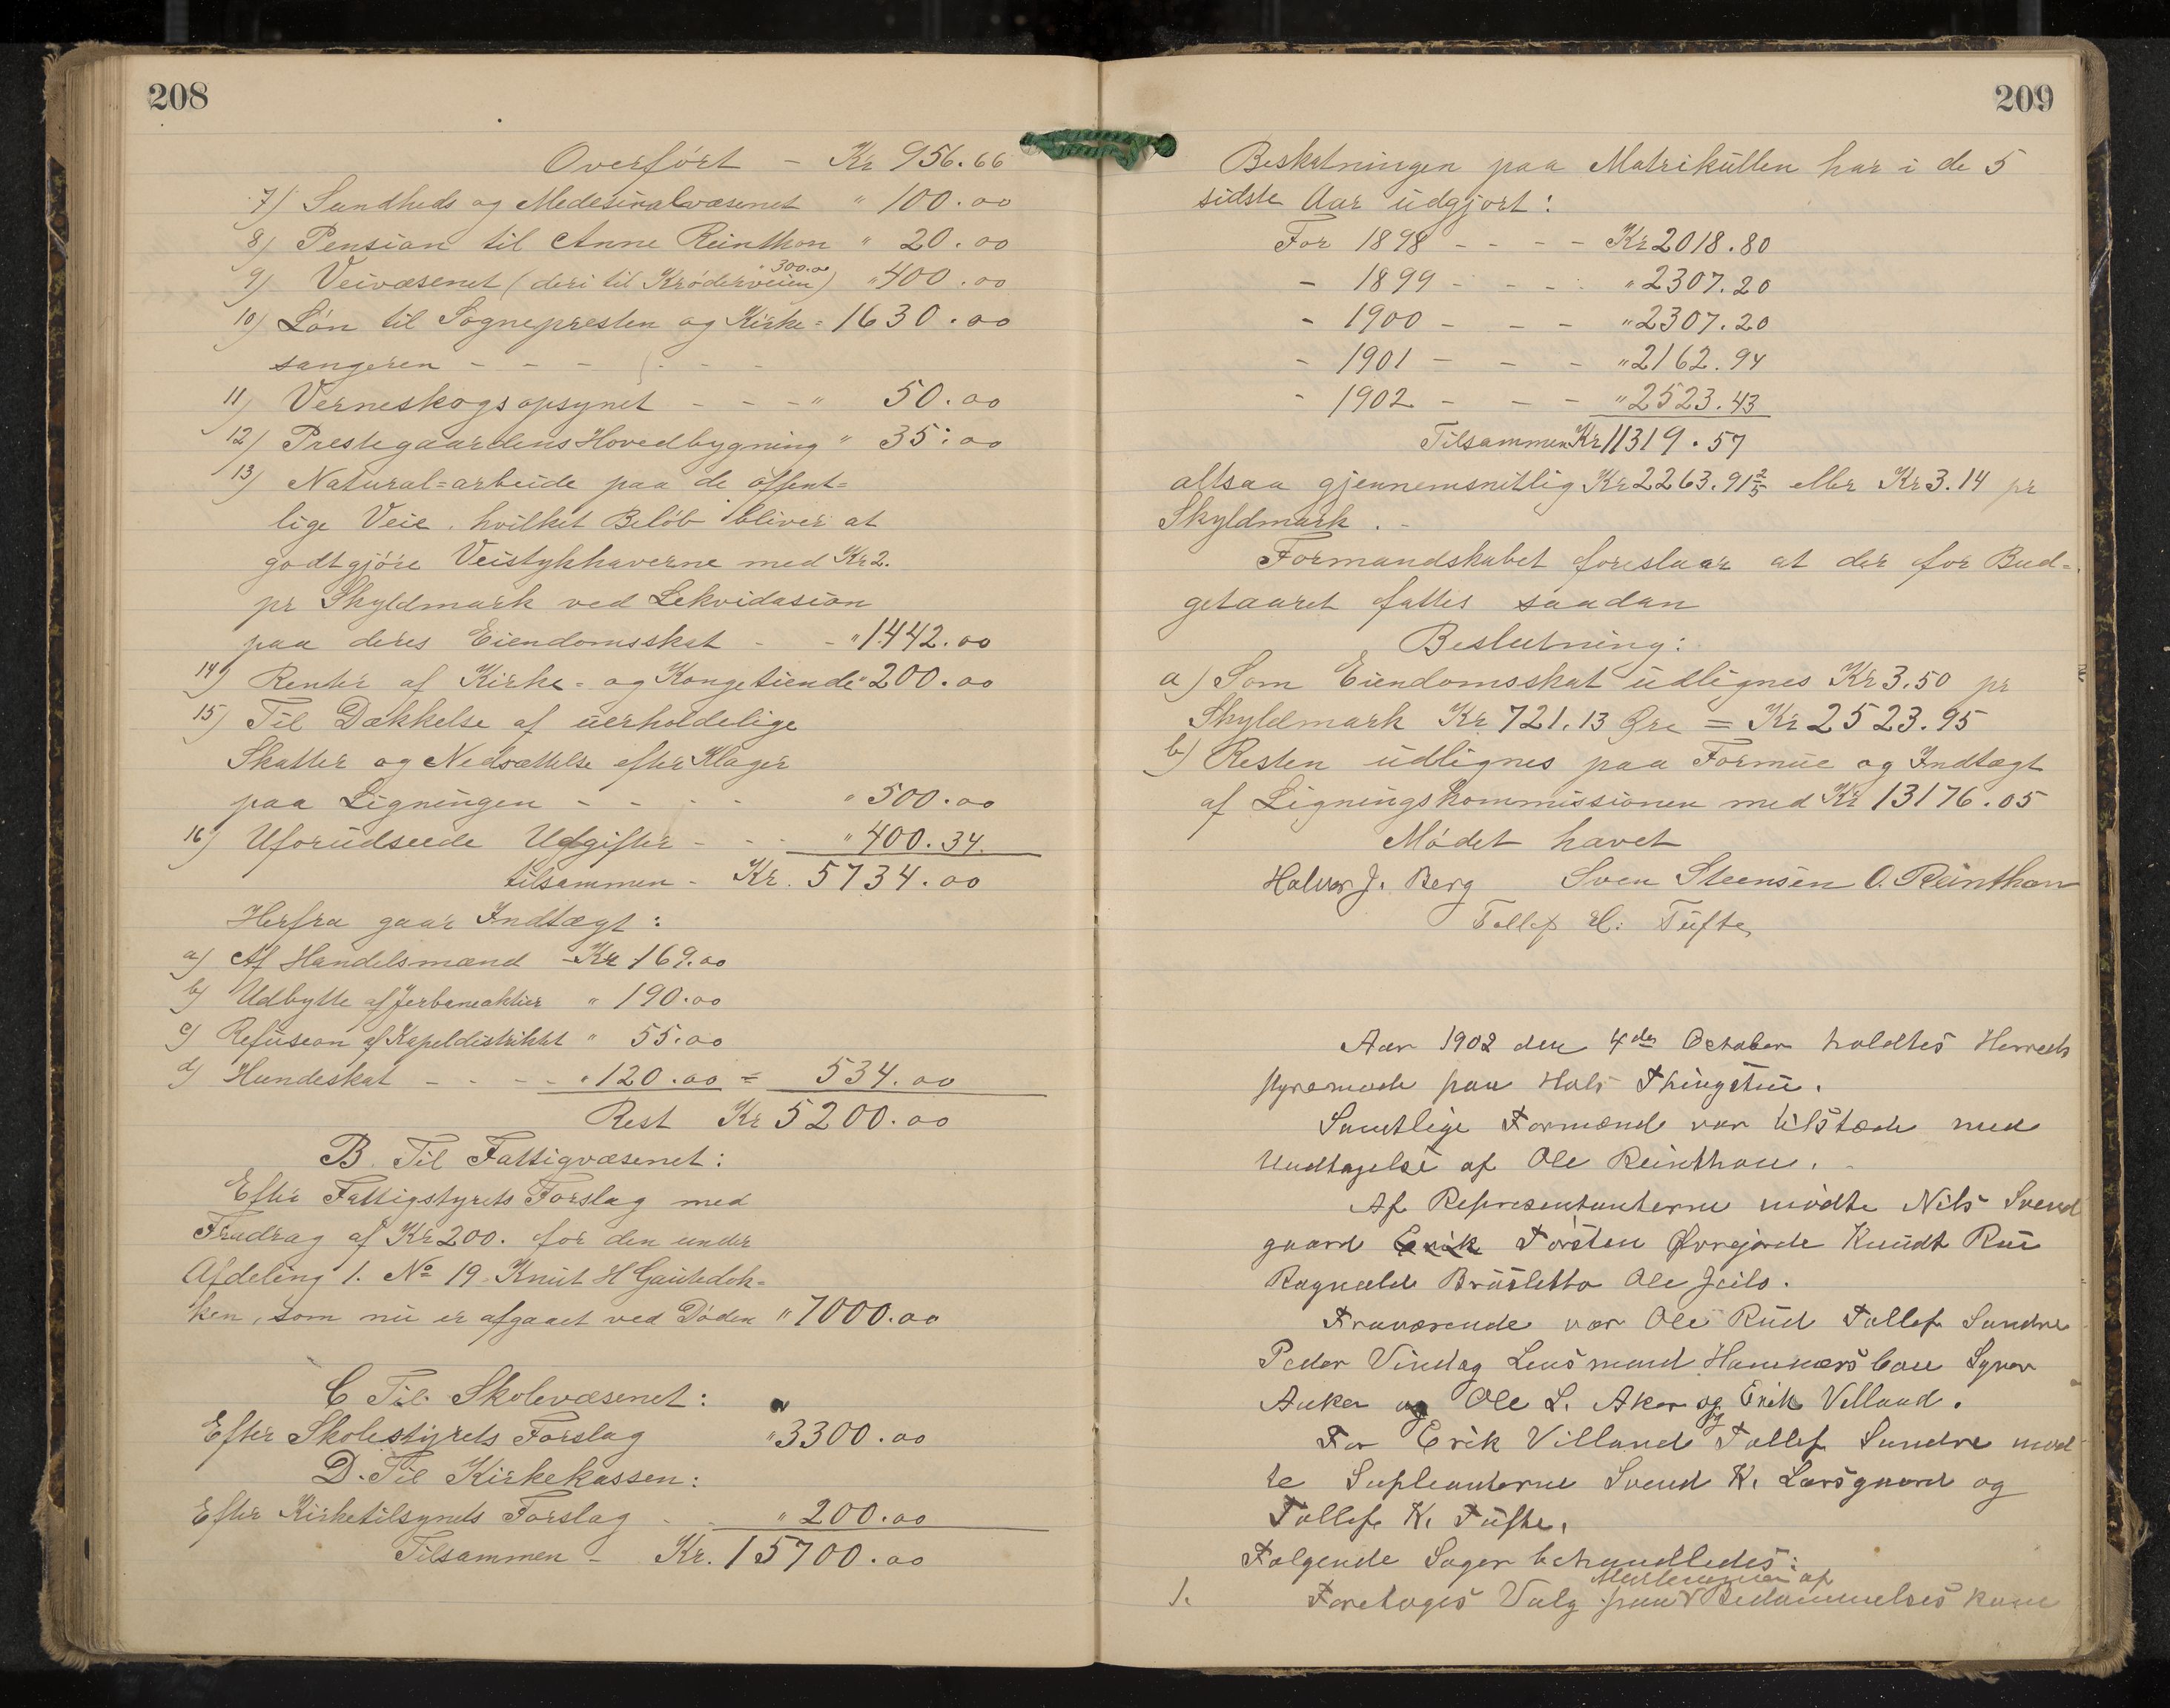 208
Overfört - Kr 956.66
7) Sundheds og Medesinalvæsenet " 100.00
8) Pension til Anne Reinthon " 20.00
9) Veivæsenet (deri til Kröderveien " 300.00) " 400.00
10) Lön til Sognepresten og Kirke= 1630.00
sangeren - - - - -
11) Verneskogsopsynet - - - " 50.00
12) Prestegaardens Hovedbygning " 35.00
13) Natural=arbeide paa de offent=
lige Veie, hvilket Belöb bliver at
godtgjöre Veistykhaverne med Kr 2.
pr Skyldmark ved Lekvidasion
paa deres Eiendomsskat - - " 1442.00
14) Renter af Kirke- og Kongetiende " 200.00
15) Til Dækkelse af uerholdelige
Skatter og Nedsættelse efter Klager
paa Ligningen - - - - " 500.00
16) Uforudseede Udgifter - - - " 400.34
tilsammen - Kr. 5734.00
Herfra gaar Indtægt:
a) Af Handelsmænd - Kr 169.00
b) Udbytte af Jerbaneaktier " 190.00
c) Refusion af Kapeldistriktet " 55.00
d) Hundeskat - - - - " 120.00 = 534.00
Rest Kr 5200.00
B. Til Fattigvæsenet:
Efter Fattigstyrets Forslag med
Fradrag af Kr 200. for den under
Afdeling 1. No 19 Knut H Gautedok=
ken, som nu er afgaaet ved Döden " 7000.00
C Til Skolevæsenet:
Efter Skolestyrets Forslag " 3300.00
D. Til Kirkekassen:
Efter Kirketilsynets Forslag - - " 200.00
Tilsammen - Kr. 15700.00
209
Beskatningen paa Matrikullen har i de 5
sidste Aar udgjort:
For 1898 - - - - Kr 2018.80
- 1899 - - - - " 2307.20
- 1900 - - - " 2307.20
- 1901 - - - " 2162.94
- 1902 - - - " 2523.43
Tilsammen Kr 11319.57
altsaa gjennemsnitlig Kr 2263.91 2/5 eller Kr 3.14 pr
Skyldmark. -
Formandskabet foreslaar at der for Bud=
getaaret fattes saadan
Beslutning:
a) Som Eiendomsskat udlignes Kr 3.50 pr
Skyldmark Kr. 721.13 Øre = Kr 2523.95
b) Resten udlignes paa Formue og Indtægt
af Ligningskommissionen med Kr 13176.05
Mödet hævet
Halvor J. Berg Sven Steensen O. Reinthon
Tollef H. Tufte
Aar 1902 den 4de October holdtes Herreds
styremöde paa Hols Thingstue.
Samtlige Formænd var tilstæde med
Undtagelse af Ole Reinthon. -
Af Representanterne mödte Nils Svend
gaard Erik Torsten Øvrejorde Knudt Rue
Ragnvald Brusletto Ole Geilo.
Fraværende var Ole Rud Tollef Sundre
Peder Vindag Lensmand Hammersboe Syver
Aaker og Ole L. Aker og Erik Villand.
For Erik Villand og Tollef Sundre möd
te Supleanterne Svend K. Larsgaard og
Tollef K. Tufte.
Fölgende Sager behandledes:
1. Foretoges Valg paa Medlemmer af Bedömmelses kom